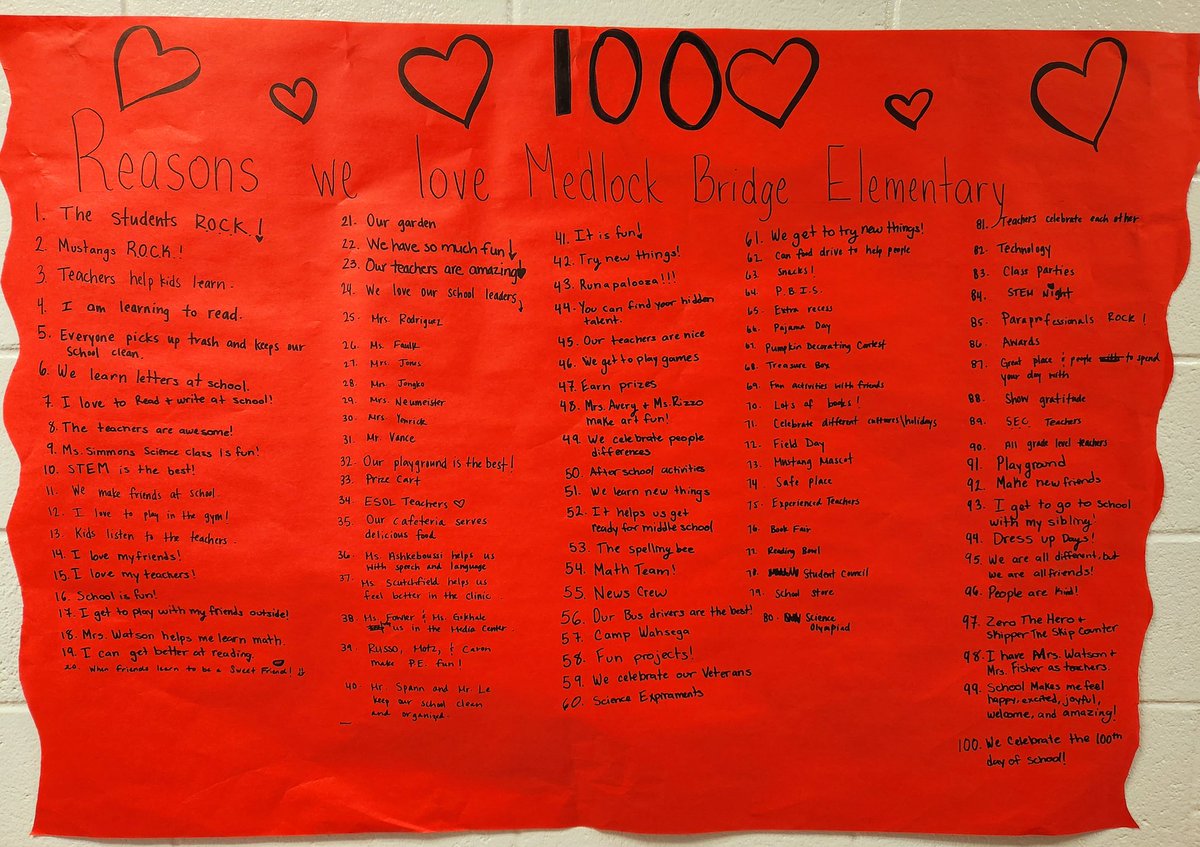 100
Reasons we love Medlock Bridge Elementary
1. The students R.O.C.K.!
2. Mustangs R.O.C.K.!
3. Teachers help kids learn.
4. I am learning to read.
5. Everyone picks up trash and keeps our
school clean.
6. We learn letters at school.
7. I love to Read + write at school!
8. The teachers are awesome!
9. Ms. Simmons Science class is fun!
10. STEM is the best!
11. We make friends at school.
12. I love to play in the gym!
13. Kids listen to the teachers.
14. I love my friends!
15. I love my teachers!
16. School is fun!
17. I get to play with my friends outside!
18. Mrs. Watson helps me learn math.
19. I can get better at reading.
20. When friends learn to be a Sweet Friend!
21. Our garden
22. We have so much fun!
23. Our teachers are amazing!
24. We love our school leaders!
25. Mrs. Rodriguez
26. Ms. Faulk
27. Mrs. Jones
28. Mrs. Jongko
29. Mrs. Neumeister
30. Mrs. Yenrick
31. Mr. Vance
32. Our playground is the best!
33. Prize Cart
34. ESOL Teachers ♡
35. Our cafeteria serves
delicious food
36. Ms. Ashkeboussi helps us
with speech and language
37. Ms. Scutchfield helps us
feel better in the clinic.
38. Ms. Fowler & Ms. Gokhale
us in the Media Center.
39. Russo, Motz, & Caron
make P.E. fun!
40. Mr. Spann and Mr. Le
keep our school clean
and organized.
41. It is fun!
42. Try new things!
43. Runapalooza!!!
44. You can find your hidden
talent.
45. Our teachers are nice
46. We get to play games
47. Earn prizes
48. Mrs. Avery + Ms. Rizzo
make art fun!
49. We celebrate people
differences
50. After school activities
51. We learn new things
52. It helps us get
ready for middle school
53. The spelling bee
54. Math Team!
55. News Crew
56. Our Bus drivers are the best!
57. Camp Wahsega
58. Fun projects!
59. We celebrate our Veterans
60. Science Expiraments
61. We get to try new things!
62. Can food drive to help people
63. Snacks!
64. P.B.I.S.
65. Extra recess
66. Pajama Day
67. Pumpkin Decorating Contest
68. Treasure Box
69. Fun activities with friends
70. Lots of books!
71. Celebrate different cultures\holidays
72. Field Day
73. Mustang Mascot
74. Safe place
75. Experienced Teachers
76. Book Fair
77. Reading Bowl
78. Student Council
79. School store
80. Science
Olympiad
81. Teachers celebrate each other
82. Technology
83. Class Parties
84. STEM Night
85. Paraprofessionals ROCK!
86. Awards
87. Great place & people to spend
your day with
88. Show gratitude
89. SEC Teachers
90. All grade level teachers
91. Playground
92. Make new friends
93. I get to go to school
with my sibling!
94. Dress up Days!
95. We are all different, but
we are all friends!
96. People are Kind!
97. Zero The Hero +
Skipper The Skip Counter
98. I have Mrs. Watson +
Mrs. Fisher as teachers.
99. School Makes me feel
happy, excited, joyful,
welcome, and amazing!
100. We Celebrate the 100th
day of school!